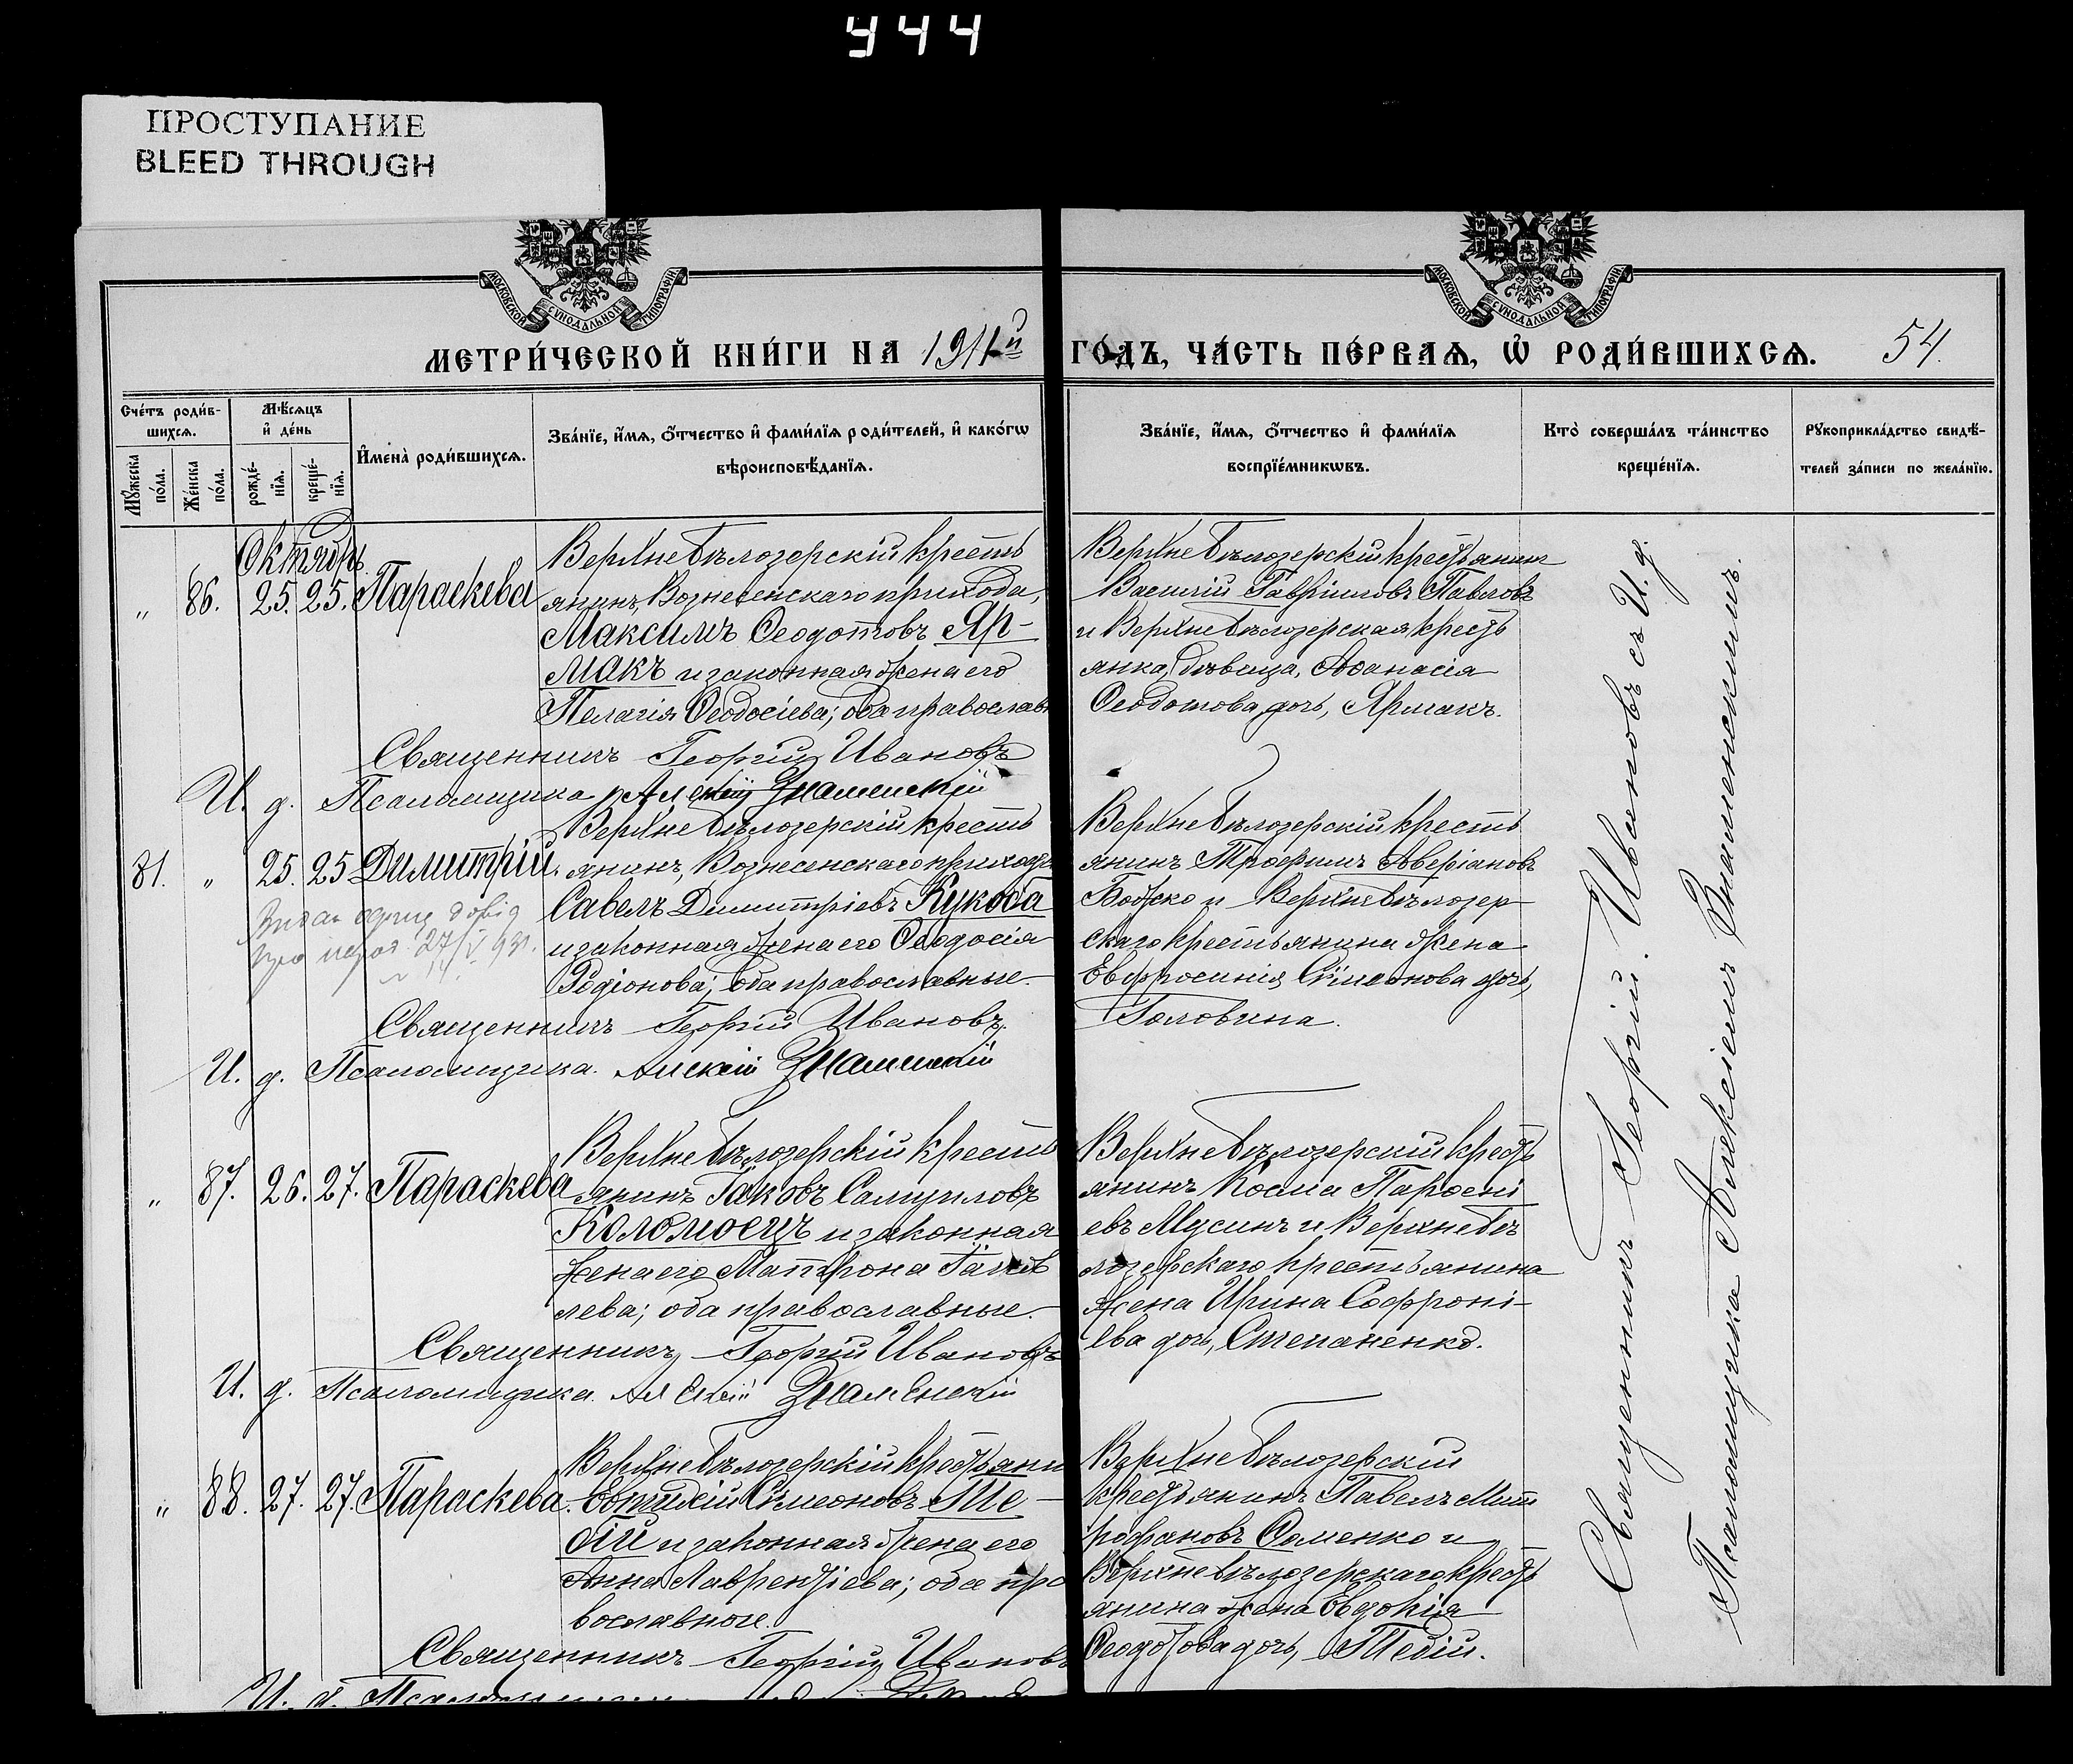 944
ПРОСТУПАНИЕ
BLEED THROUGH
МОСКОВСКОЙ СѴНОДАЛЬНОЙ ТИПОГРАФІИ
МОСКОВСКОЙ СѴНОДАЛЬНОЙ ТИПОГРАФІИ
МЕТРИ́ЧЕСКОЙ КНИ́ГИ НА 1911й ГО́ДЪ, ЧА́СТЬ ПЕ́РВАѦ, Ѡ҆ РОДИ́ВШИХСѦ. 54.
Сче́тъ роди́в-
шихсѧ.
Мꙋ́жеска по́ла.
Же́нска по́ла.
Мѣ́сѧцъ
и҆ де́нь
рожде́-
нїѧ.
креще́-
нїѧ.
И҆мена̀ роди́вшихсѧ.
Зва́нїе, и҆́мѧ, ѻ҆́тчество и҆ фами́лїѧ роди́телей, и҆ како́гѡ
вѣроисповѣ́данїѧ.
Зва́нїе, и҆́мѧ, ѻ҆́тчество и҆ фами́лїѧ
воспрїе́мникѡвъ.
Кто̀ соверша́лъ та́инство
креще́нїѧ.
Рꙋкоприкла́дство свидѣ́-
телей за́писи по жела́нїю.
Октябрь
„ 86. 25. 25. Параскева
Верхнебѣлозерскій кресть
янинъ, Вознесенскаго прихода,
Максимъ Ѳеодотовъ Яр-
макъ и законная жена его
Пелагія Ѳеодосіева; оба православн
Священникъ Георгій Ивановъ
И. д. Псаломщика Алексій Знаменскій
Верхнебѣлозерскій крестьянин
Василій Гавріиловъ Павловъ
и Верхнебѣлозерская кресть
янка, дѣвица, Аѳанасія
Ѳеодотова дочь, Ярмакъ.
81. „ 25. 25 Димитрій.
Верхнебѣлозерскій кресть
янинъ, Вознесенскаго прихода
Савелъ Димитріевъ Кукоба
и законная жена его Ѳеодосія
Родіонова; оба православные.
27/V 931.
Священникъ Георгій Ивановъ.
И. д. Псаломщика. Алексій Знаменскій
Верхнебѣлозерскій кресть
янинъ Трофимъ Аверіановъ
Божко и Верхнебѣлозер
скаго крестьянина жена
Евфросинія Симеонова дочь,
Головина.
„ 87. 26. 27. Параскева
Верхнебѣлозерскій кресть
янинъ Іаковъ Самуиловъ
Коломоецъ и законная
жена его Матрона
лева; оба православные.
Священникъ Георгій Ивановъ
И. д. Псаломщика. Алексій Знаменскій
Верхнебѣлозерскій кресть
янинъ Косма Парѳені
евъ Мусинъ и Верхнебѣ
лозерскаго крестьянина
жена Ирина Софроні-
ева дочь, Степаненко.
„ 88. 27. 27. Параскева.
Верхнебѣлозерскій крестьяни
Евтихій Симеоновъ
и законная жена его
Анна Лаврентіева; оба пра
вославные.
Священникъ Георгій Ивановъ
И. д.
Верхнебѣлозерскій
крестьянинъ Павелъ Мит
рофановъ Фоменко и
Верхнебѣлозерскаго кресть
янина жена Евдокія
Ѳеодотова дочь,
Священникъ Георгій Ивановъ съ И. д.
Псаломщика Алексіемъ Знаменскимъ.